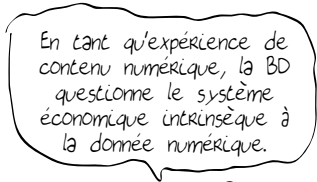 En tant qu'expérience de
contenu numérique, la BD
questionne le système
économique intrinsèque à
la donnée numérique.